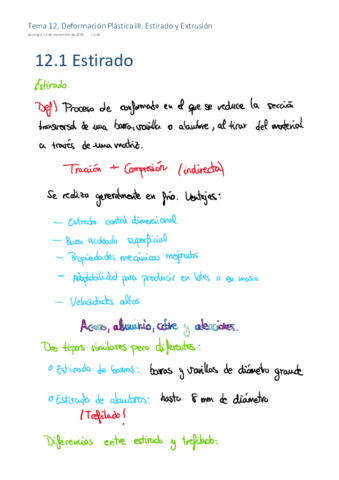 Tema 12, Deformación Plástica III. Estirado y Extrusión
12.1 Estirado
Estirado
Def/ Proceso de conformado en el que se reduce la sección
transversal de una barra, varilla o alambre, al tirar del material
a través de una matriz.
Tracción + Compresión (indirecta)
Se realiza generalmente en frío. Ventajas:
– Estrecho control dimensional
– Buen acabado superficial
– Propiedades mecánicas mejoradas
– Adaptabilidad para producir en lotes o en masa
– Velocidades altas
Acero, aluminio, cobre y aleaciones.
Dos tipos similares pero diferentes:
o Estirado de barras: barras y varillas de diámetro grande
o Estirado de alambres: hasta 8 mm de diámetro
/Trefilado/
Diferencias entre estirado y trefilado: